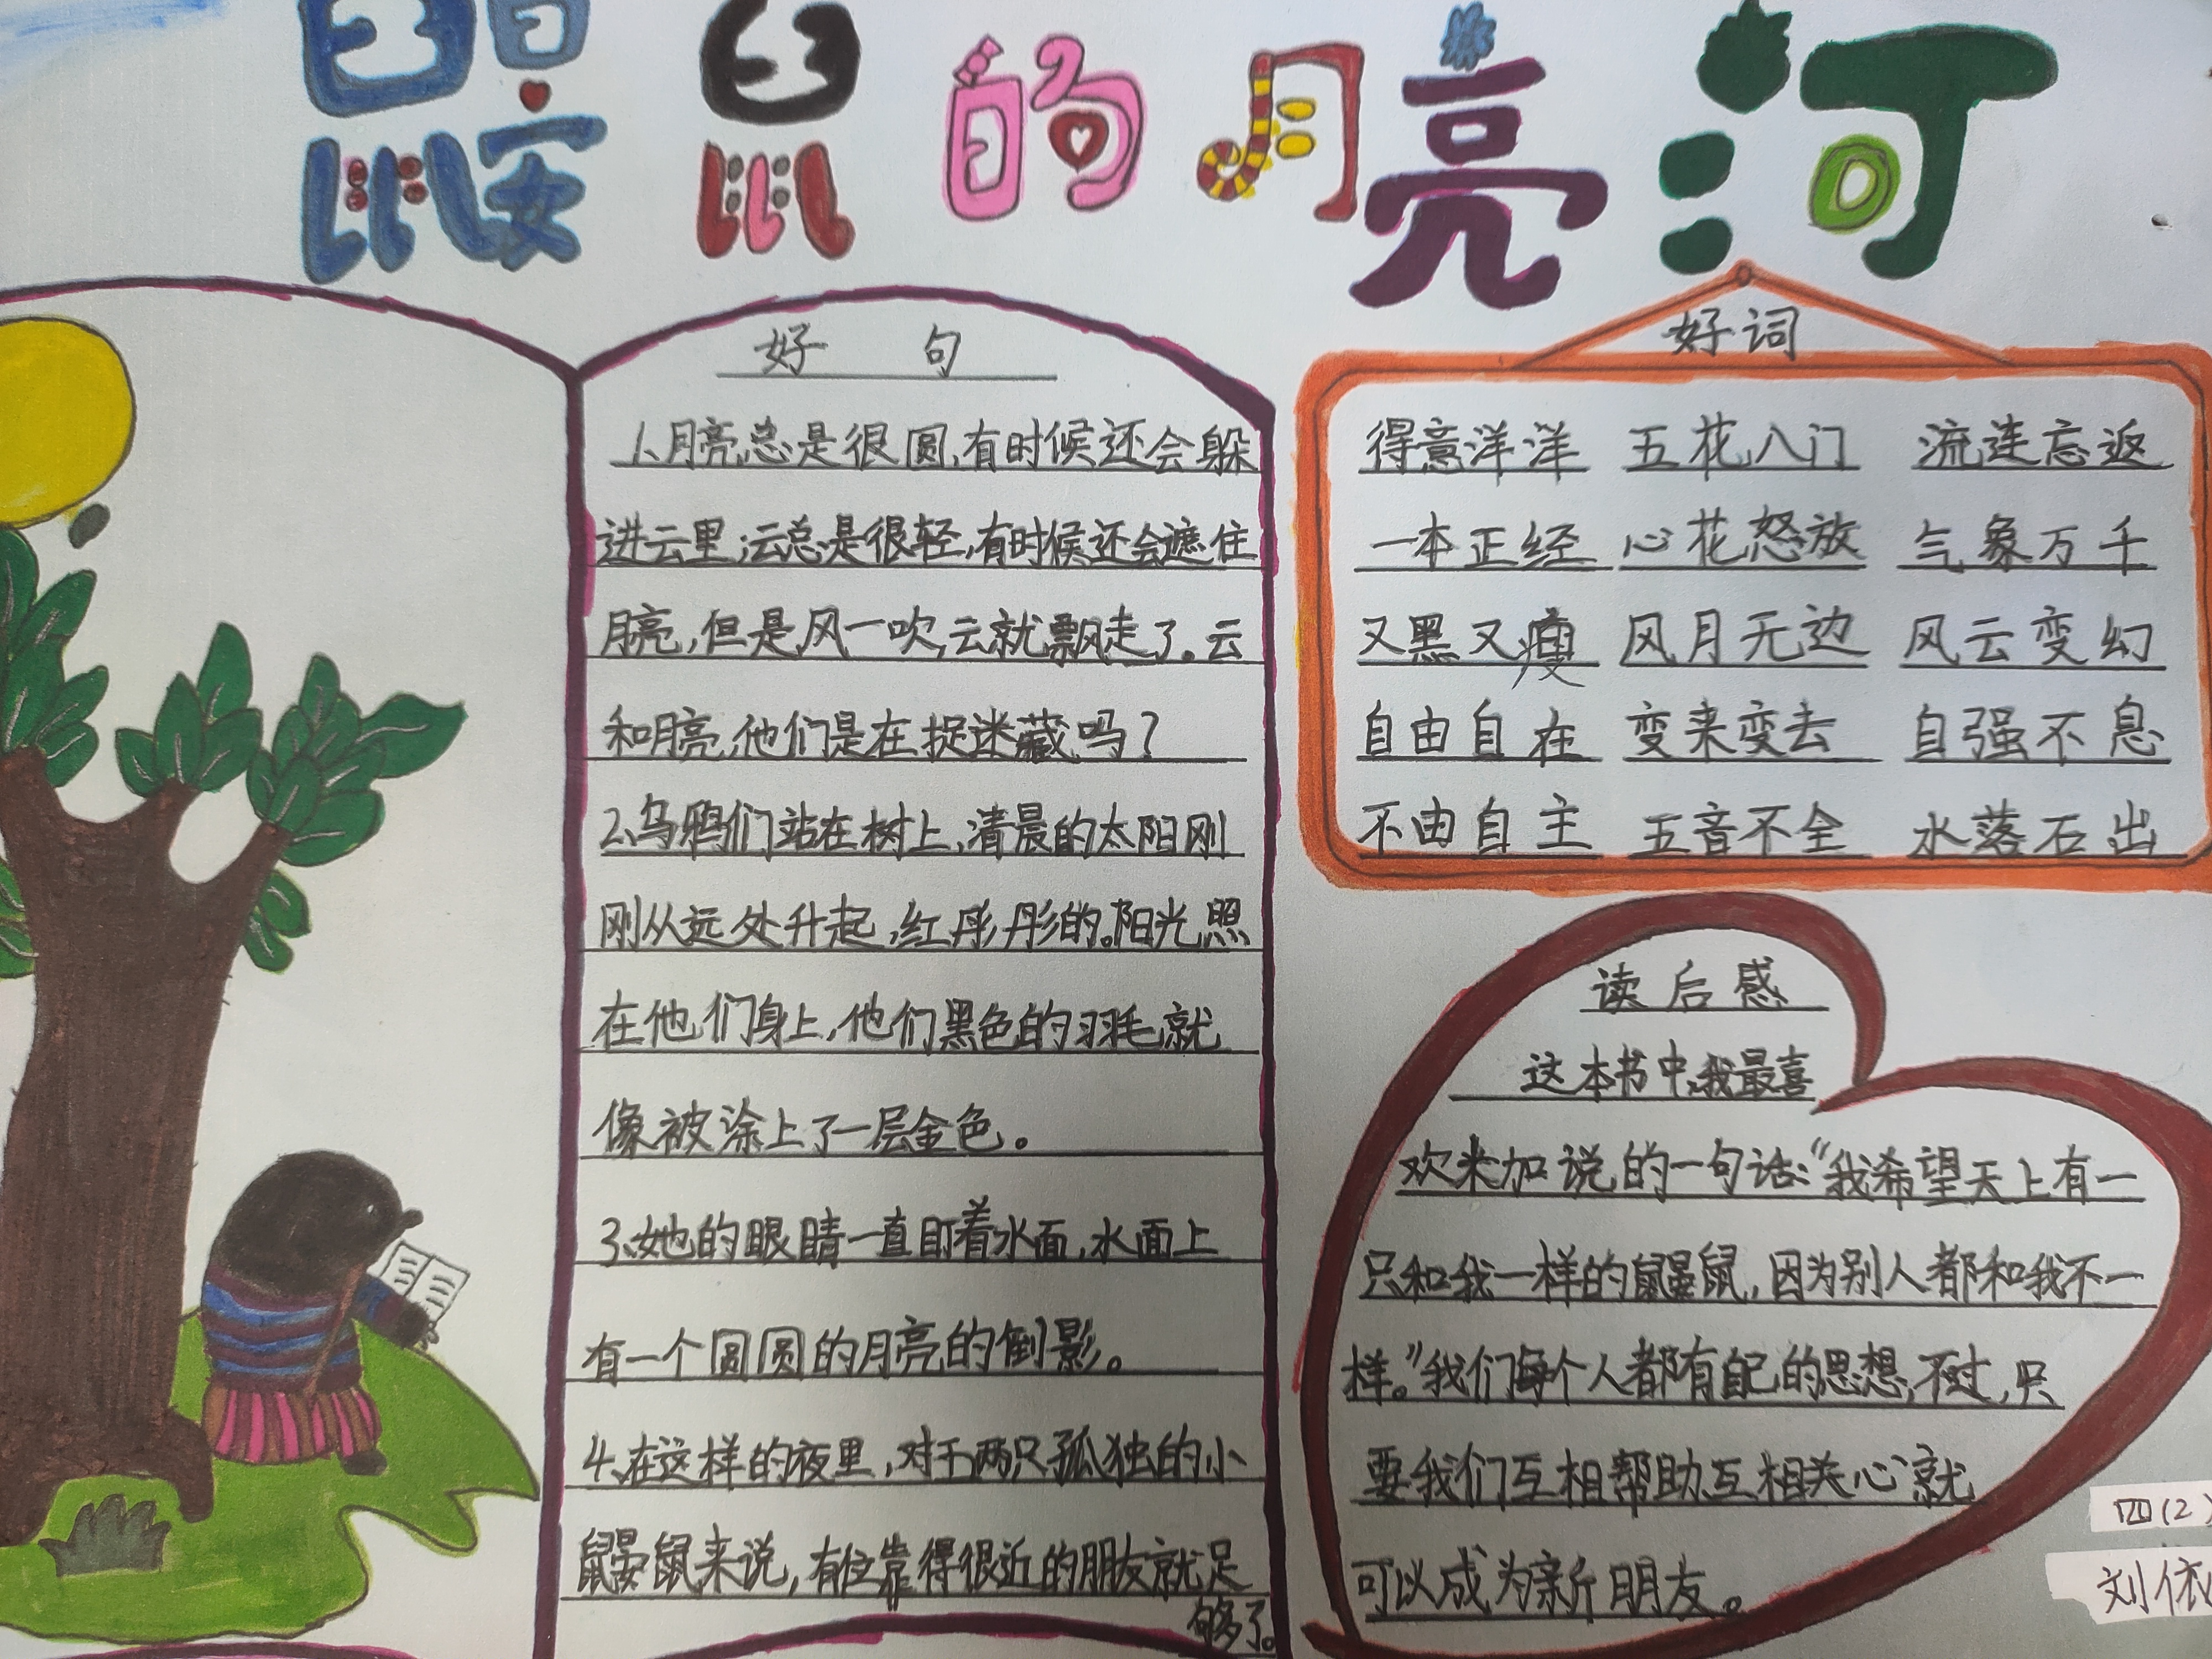 鼹鼠的月亮河
好句
1、月亮总是很圆,有时候还会躲
进云里;云总是很轻,有时候还会遮住
月亮,但是风一吹,云就飘走了。云
和月亮,他们是在捉迷藏吗?
2、乌鸦们站在树上,清晨的太阳刚
刚从远处升起,红彤彤的。阳光照
在他们身上,他们黑色的羽毛就
像被涂上了一层金色。
3、她的眼睛一直盯着水面,水面上
有一个圆圆的月亮的倒影。
4、在这样的夜里,对于两只孤独的小
鼹鼠来说,有位靠得很近的朋友就足
够了。
好词
得意洋洋 五花八门 流连忘返
一本正经 心花怒放 气象万千
又黑又瘦 风月无边 风云变幻
自由自在 变来变去 自强不息
不由自主 五音不全 水落石出
读后感
这本书中,我最喜
欢米加说的一句话:“我希望天上有一
只和我一样的鼹鼠,因为别人都和我不一
样。”我们每个人都有自己的思想,不过,只
要我们互相帮助,互相关心,就
可以成为新朋友。
四(2)
刘依